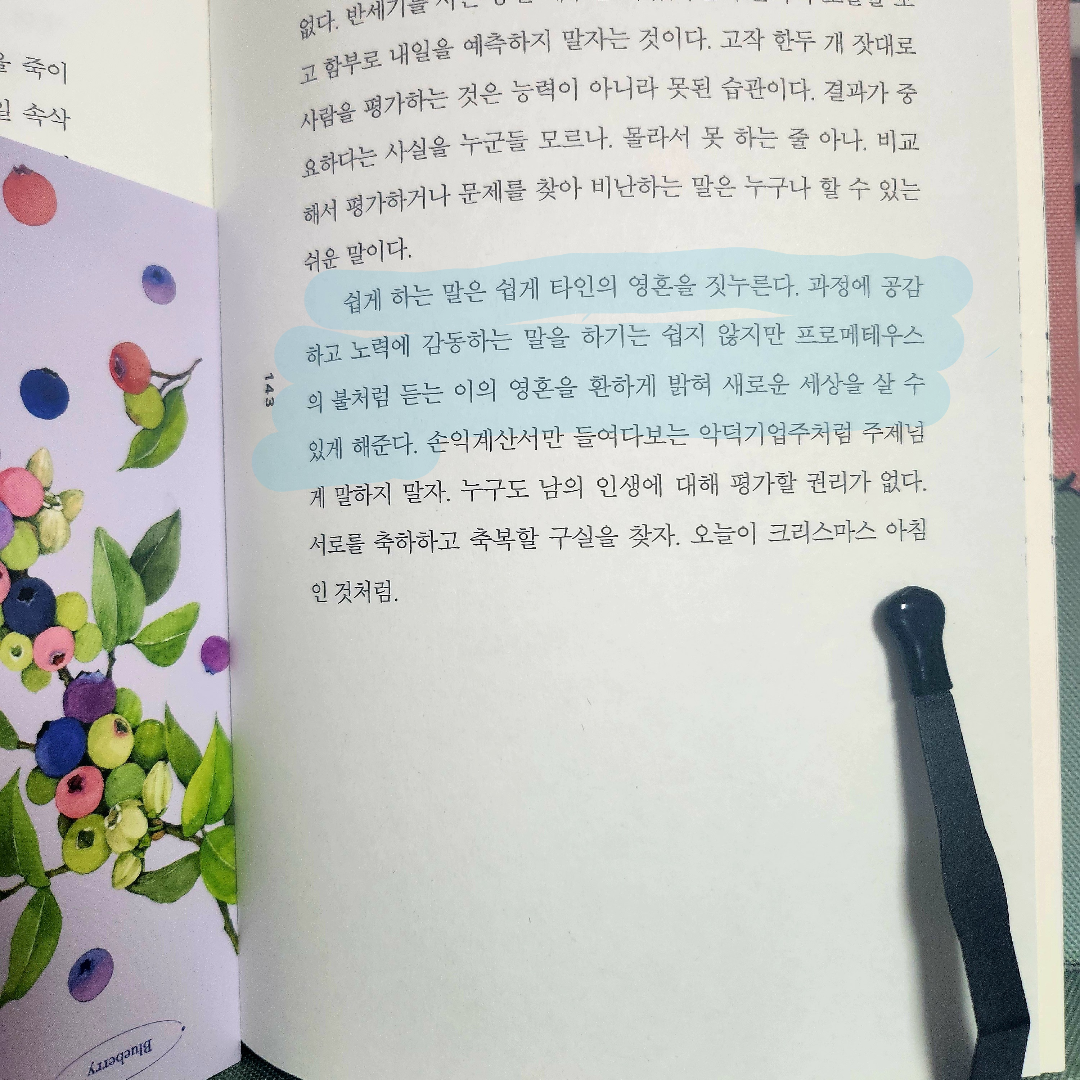 을 죽이
일 속삭
없다. 반세기를
고 함부로 내일을 예측하지 말자는 것이다. 고작 한두 개 잣대로
사람을 평가하는 것은 능력이 아니라 못된 습관이다. 결과가 중
요하다는 사실을 누군들 모르나. 몰라서 못 하는 줄 아나. 비교
해서 평가하거나 문제를 찾아 비난하는 말은 누구나 할 수 있는
쉬운 말이다.
쉽게 하는 말은 쉽게 타인의 영혼을 짓누른다. 과정에 공감
하고 노력에 감동하는 말을 하기는 쉽지 않지만 프로메테우스
의 불처럼 듣는 이의 영혼을 환하게 밝혀 새로운 세상을 살 수
있게 해준다. 손익계산서만 들여다보는 악덕기업주처럼 주제넘
게 말하지 말자. 누구도 남의 인생에 대해 평가할 권리가 없다.
서로를 축하하고 축복할 구실을 찾자. 오늘이 크리스마스 아침
인 것처럼.
143
Blueberry